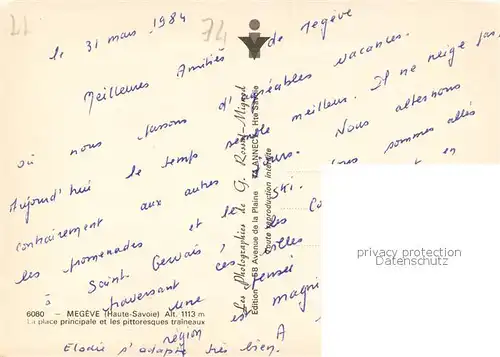 74
le 31 mars 1984
Meilleures Amitiés de Megève
où nous passons d'agréables vacances.
Aujourd'hui le temps semble meilleur. Il ne neige pas,
contrairement aux autres jours. Nous alternons
les promenades et le ski. sommes allés
à Saint. Gervais, en
traversant ces
région est magni
Elodie s'adapte très bien. A
Les Photographies de G. Rossat-Mignod
Edition 58 Avenue de la Plaine 74 ANNECY Hte Savoie
Toute reproduction interdite
6080 — MEGÈVE (Haute-Savoie) Alt. 1113 m
La place principale et les pittoresques traîneaux
privacy protection
Datenschutz